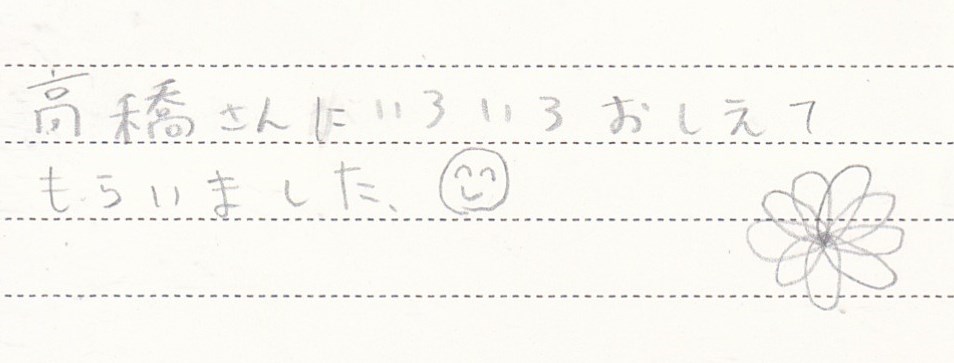 高橋さんにいろいろおしえて
もらいました、